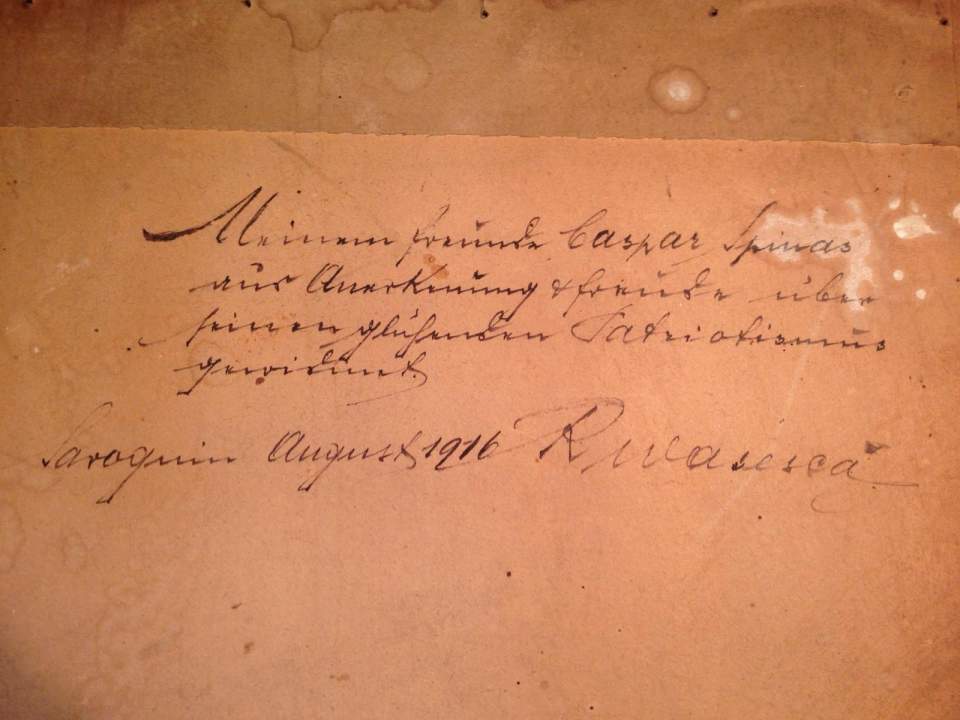 Meinem Freunde Caspar Spinas
aus Anerkennung & Freude über
seinen glühenden Patriotismus
gewidmet.
Savognin August 1916